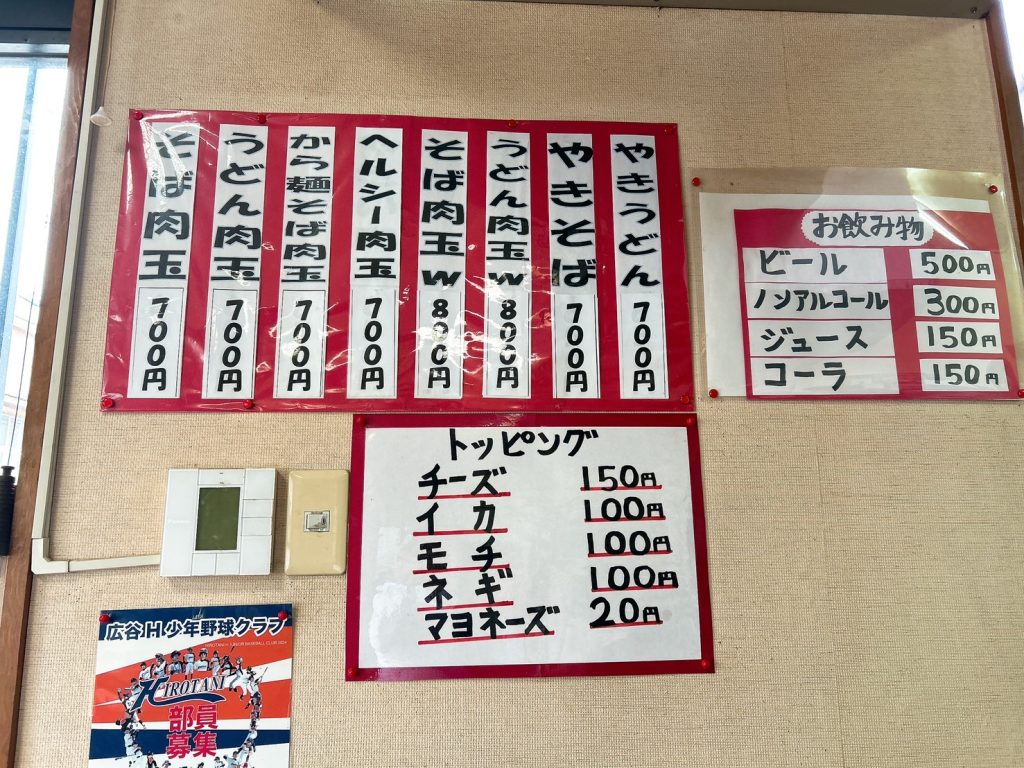 やきうどん 700円
やきそば 700円
うどん肉玉W 800円
そば肉玉W 800円
ヘルシー肉玉 700円
から麺そば肉玉 700円
うどん肉玉 700円
そば肉玉 700円
お飲み物
ビール 500円
ノンアルコール 300円
ジュース 150円
コーラ 150円
トッピング
チーズ 150円
イカ 100円
モチ 100円
ネギ 100円
マヨネーズ 20円
広谷H少年野球クラブ
HIROTANI H JUNIOR BASEBALL CLUB 2024
HIROTANI
部員
募集